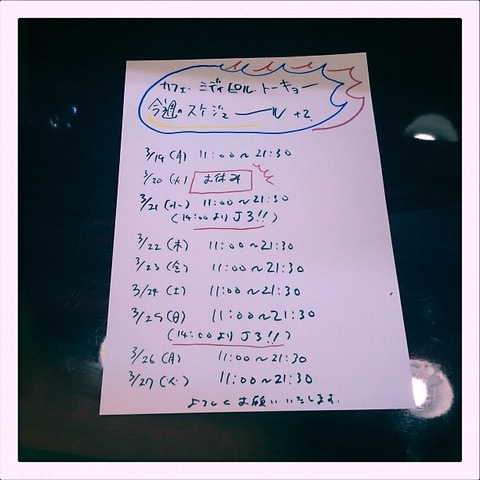 カフェ・ミディピル トーキョー
今週のスケジュール +2.
3/19(月) 11:00~21:30
3/20(火) お休み
3/21(水) 11:00~21:30
(14:00より J3!!)
3/22(木) 11:00~21:30
3/23(金) 11:00~21:30
3/24(土) 11:00~21:30
3/25(日) 11:00~21:30
(14:00より J3!!)
3/26(月) 11:00~21:30
3/27(火) 11:00~21:30
よろしくお願いいたします.